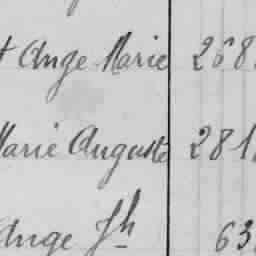 t Ange Marie 268
Marie Auguste 281
Ange Jh 63